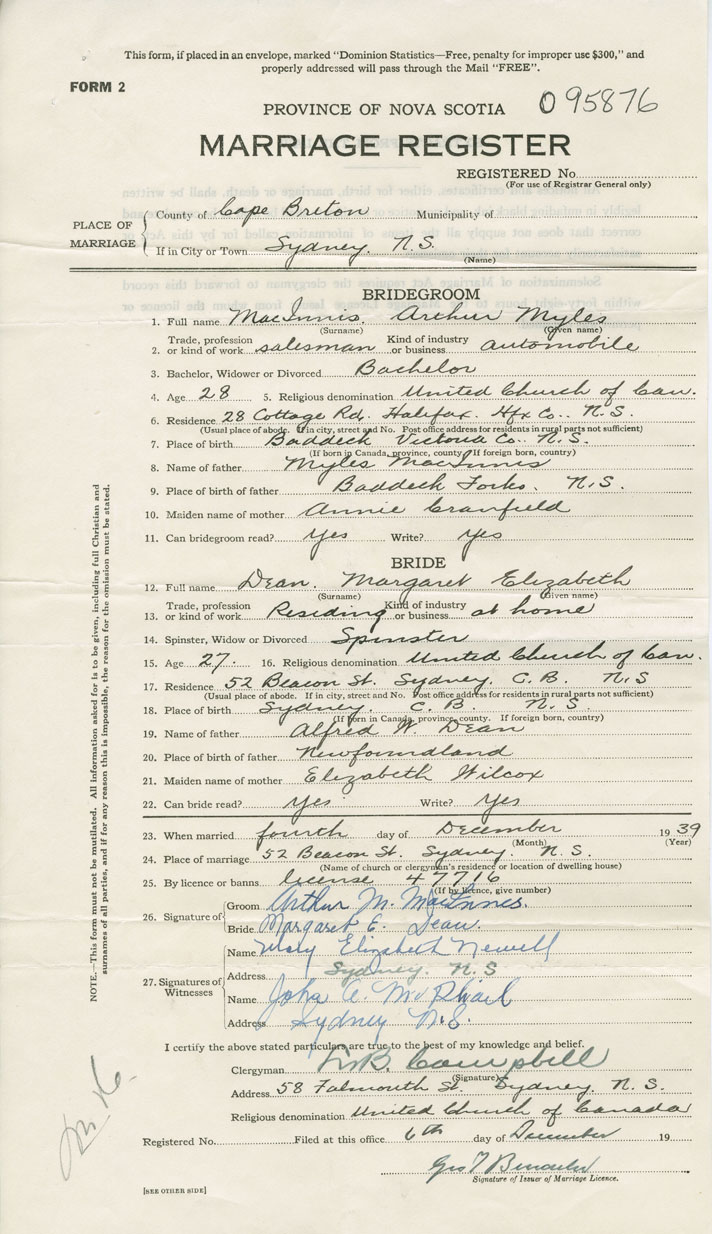 This form, if placed in an envelope, marked "Dominion Statistics—Free, penalty for improper use $300," and
properly addressed will pass through the Mail "FREE".
FORM 2
095876
PROVINCE OF NOVA SCOTIA
MARRIAGE REGISTER
REGISTERED No.
(For use of Registrar General only)
PLACE OF MARRIAGE
County of Cape Breton Municipality of
If in City or Town Sydney, N.S.
(Name)
BRIDEGROOM
1. Full name MacInnis, Archur Myles
(Surname) (Given name)
2. Trade, profession or kind of work salesman Kind of industry or business automobile
3. Bachelor, Widower or Divorced Bachelor
4. Age 28 5. Religious denomination United Church of Can.
6. Residence 28 Cottage Rd. Halifax. Hfx Co.. N.S.
(Usual place of abode. If in city, street and No. Post office address for residents in rural parts not sufficient)
7. Place of birth Baddeck Victoria Co.. N.S.
(If born in Canada, province, county. If foreign born, country)
8. Name of father Myles MacInnis
9. Place of birth of father Baddeck Forks. N.S.
10. Maiden name of mother Annie Cranfield
11. Can bridegroom read? Yes Write? Yes
BRIDE
12. Full name Dean. Margaret Elizabeth
(Surname) (Given name)
13. Trade, profession or kind of work Residing Kind of industry or business at home
14. Spinster, Widow or Divorced Spinster
15. Age 27. 16. Religious denomination United Church of Can.
17. Residence 52 Beacon St. Sydney. C.B. N.S
(Usual place of abode. If in city, street and No. Post office address for residents in rural parts not sufficient)
18. Place of birth Sydney. C.B. N.S.
(If born in Canada, province, county. If foreign born, country)
19. Name of father Alfred W. Dean
20. Place of birth of father Newfoundland
21. Maiden name of mother Elizabeth Wilcox
22. Can bride read? Yes Write? Yes
23. When married fourth day of December 1939
(Month) (Year)
24. Place of marriage 52 Beacon St. Sydney. N.S.
(Name of church or clergyman's residence or location of dwelling house)
25. By licence or banns license 47716
(If by licence, give number)
26. Signature of
Groom Arthur M. MacInnes.
Bride Margaret E. Dean.
27. Signatures of Witnesses
Name Mary Elizabeth Newell
Address Sydney. N.S
Name John A. McPhail
Address Sydney N.S.
I certify the above stated particulars are true to the best of my knowledge and belief.
Clergyman Campbell
(Signature)
Address 58 Falmouth St. Sydney. N.S.
Religious denomination United Church of Canada
Registered No. Filed at this office 6th day of December 19
Signature of Issuer of Marriage Licence.
[SEE OTHER SIDE]
NOTE.—This form must not be mutilated. All information asked for is to be given, including full Christian and
surnames of all parties, and if for any reason this is impossible, the reason for the omission must be stated.